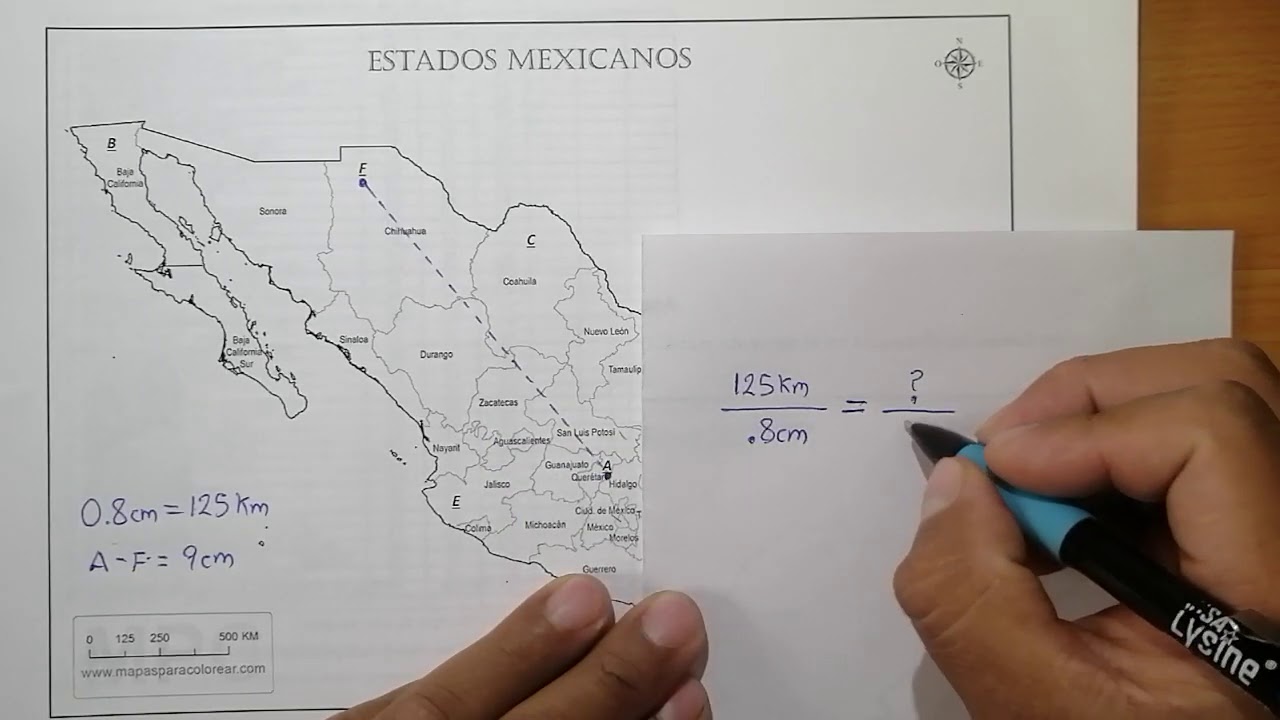 ESTADOS MEXICANOS
N
O E
S
B
Baja
California
F
Sonora
Chihuahua
C
Coahuila
Nuevo León
Tamaulip
Baja
California
Sur
Sinaloa
Durango
Zacatecas
San Luis Potosí
Nayarit
Aguascalientes
A
Guanajuato
Querétar
Hidalgo
Jalisco
E
Colima
Michoacán
Ciud. de México
México
Morelos
Guerrero
0.8cm = 125 Km
A - F = 9cm
0 125 250 500 KM
www.mapasparacolorear.com
125 Km = ?
.8cm
Lysine